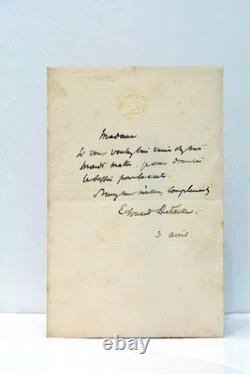 Madame
Si vous voulez bien venir chez moi
mardi matin, je vous donnerai
le dessin pour la vente.
mes meilleurs compliments
Edouard Detaille.
3 avril